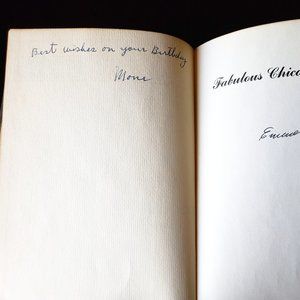 Best wishes on your Birthday
Mons
Fabulous Chic